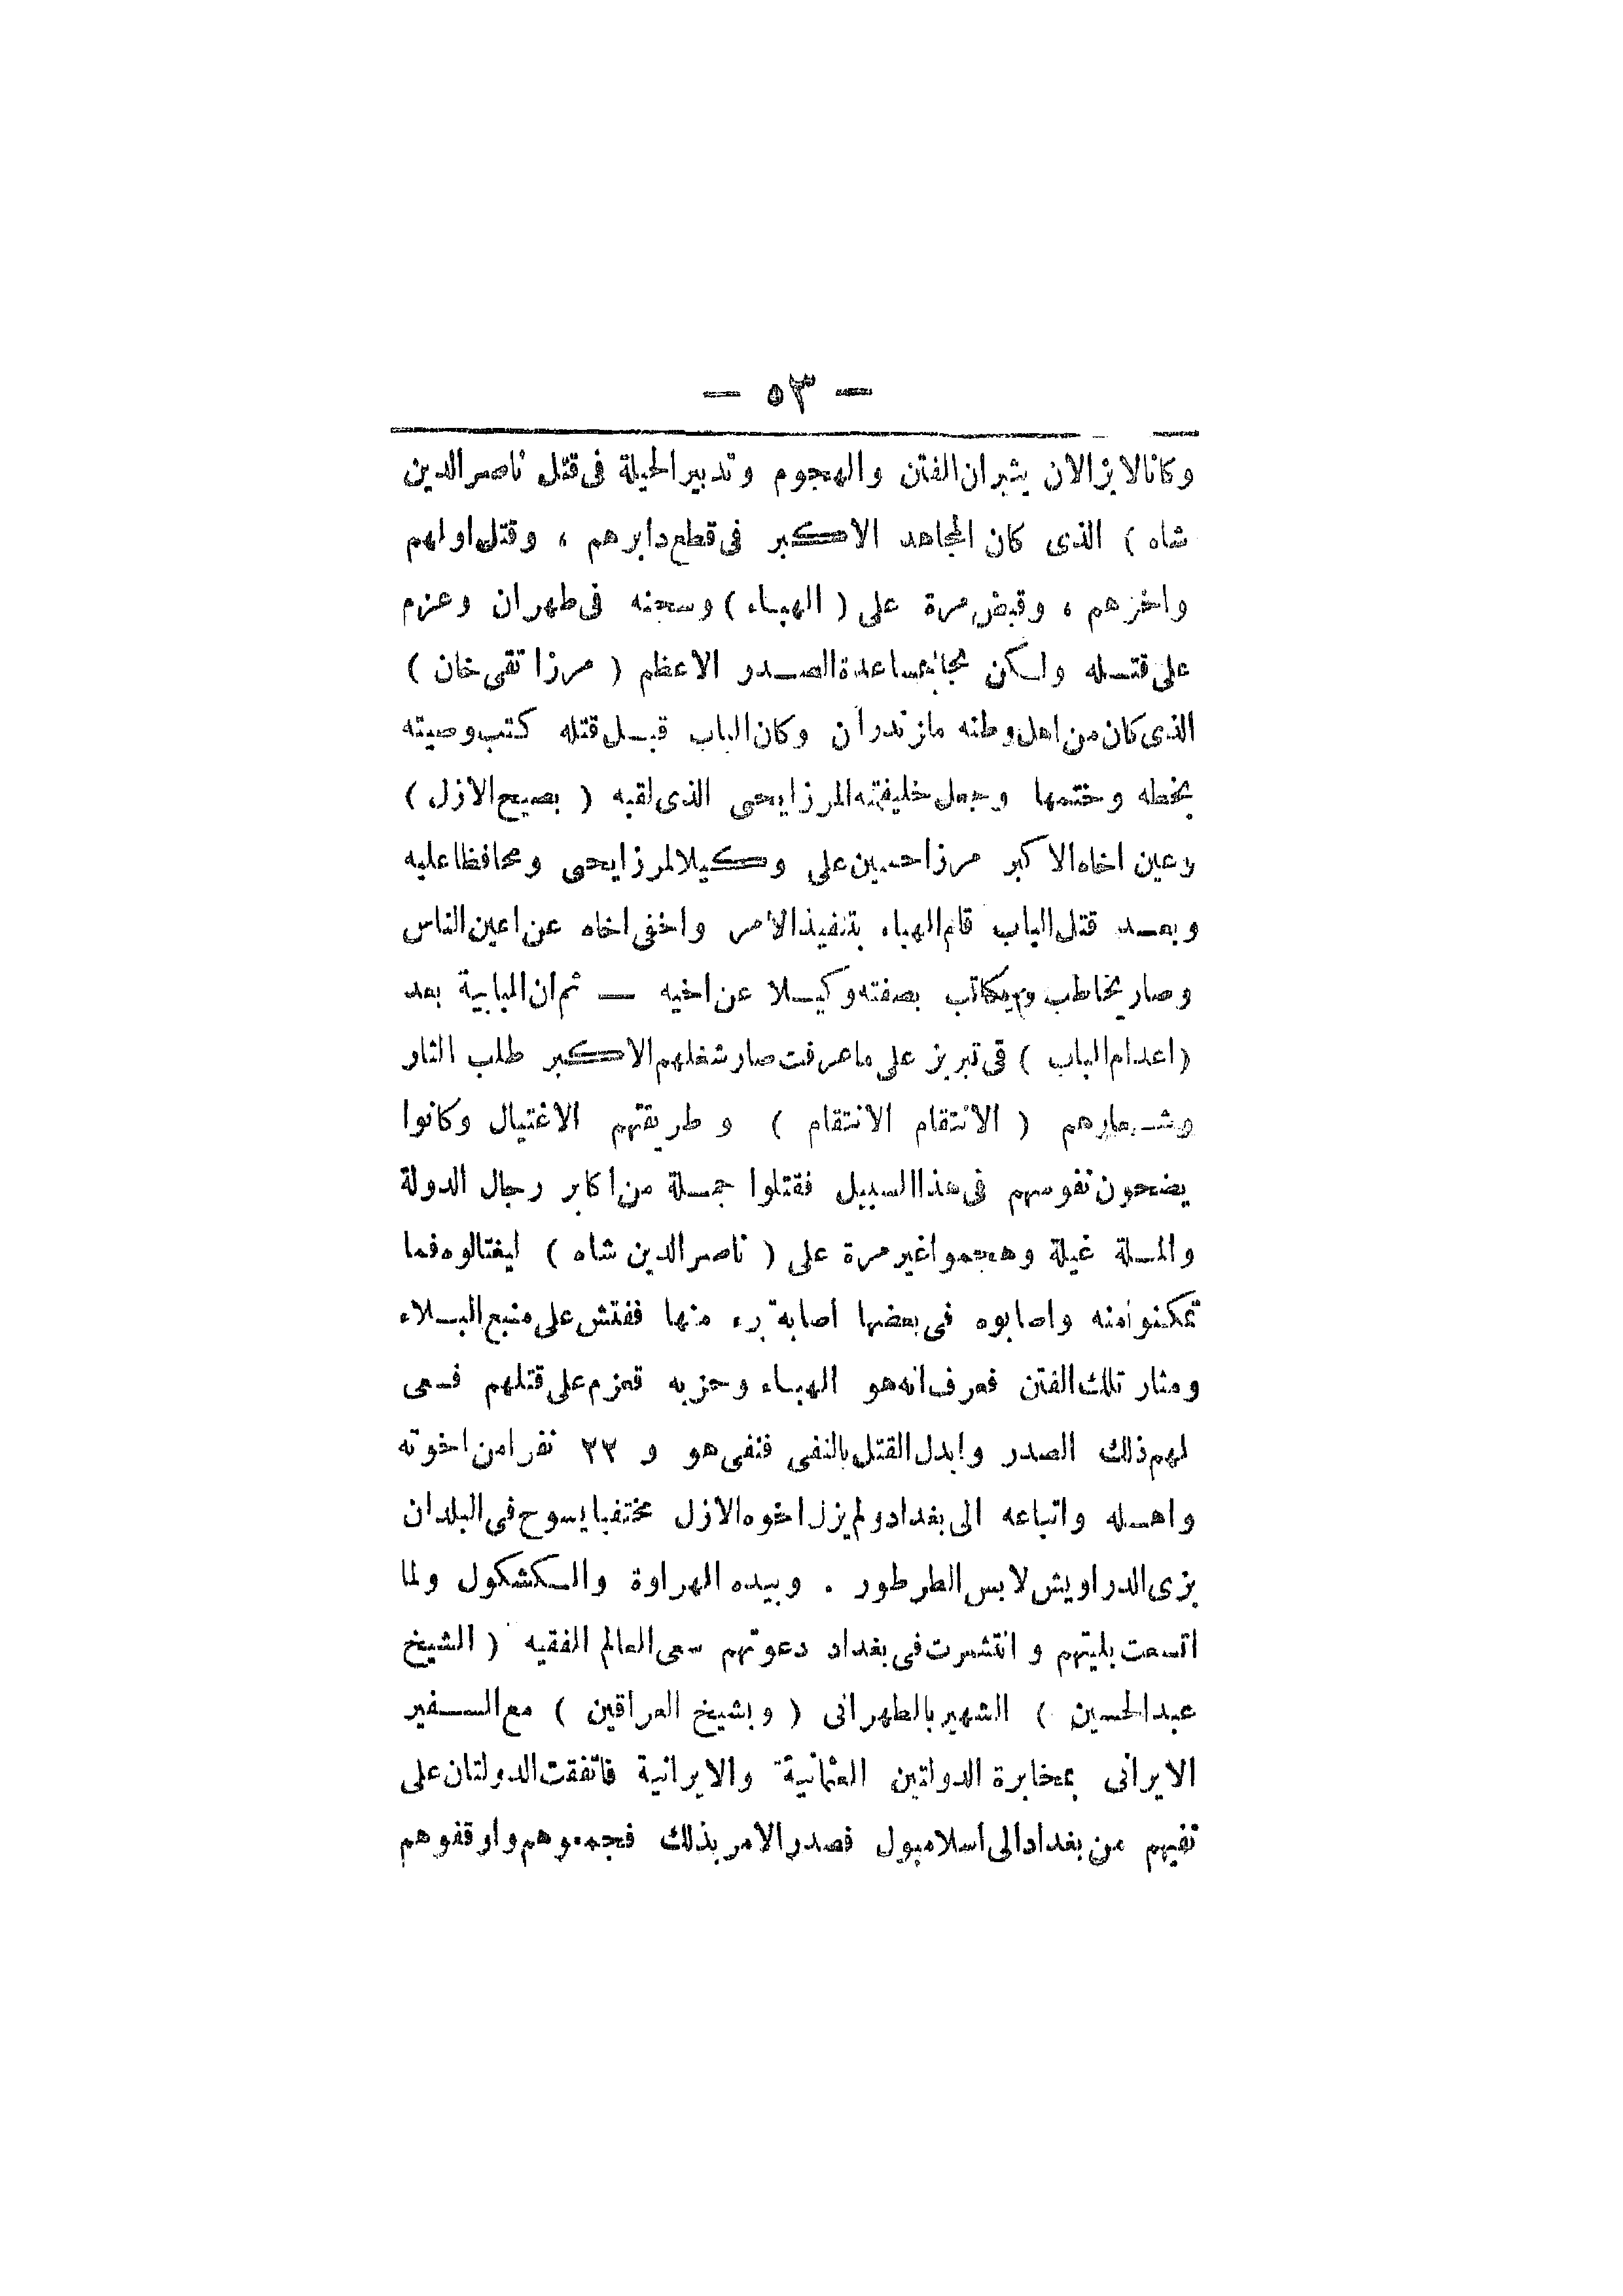 — ٥٣ —
وكانا لا يزالان يثيران الفتن والهجوم وتدبير الحيلة فى قتل ناصر الدين
شاه ) الذى كان المجاهد الاكبر فى قطع دابرهم ، وقتل اولهم
واخرهم ، وقبض مرة على ( البهاء ) وسجنه فى طهران وعزم
على قتله ولكن نجا بمساعدة الصدر الاعظم ( مرزا تقى خان )
الذى كان من اهل وطنه مازندران وكان الباب قبل قتله كتب وصيته
بخطه وختمها وجعل خليفته المرزا يحيى الذى لقبه ( بصبح الازل )
وعين اخاه الاكبر مرزا حسين على وكيلا لمرزا يحيى ومحافظا عليه
وبعد قتل الباب قام البهاء بتنفيذ الامر واخفى اخاه عن اعين الناس
وصار يخاطب ويكاتب بصفته وكيلا عن اخيه — ثم ان البابية بعد
( اعدام الباب ) قى تبريز على ما عرفت صار شغلهم الاكبر طلب الثار
وشعارهم ( الانتقام الانتقام ) وطريقتهم الاغتيال وكانوا
يضحون نفوسهم فى هذا السبيل فقتلوا جملة من اكابر رجال الدولة
والملة غيلة وهجموا غير مرة على ( ناصر الدين شاه ) ليغتالوه فما
تمكنوا منه واصابوه فى بعضها اصابة برء منها ففتش على منبع البلاء
ومثار تلك الفتن فعرف انه هو البهاء وحزبه فعزم على قتلهم فسعى
لهم ذلك الصدر وابدل القتل بالنفى فنفى هو و ٣٣ نفرا من اخوته
واهله واتباعه الى بغداد ولم يزل اخوه الازل مختفيا يسوح فى البلدان
بزى الدراويش لابس الطرطور . وبيده الهراوة والكشكول ولما
اتسعت بليتهم وانتشرت فى بغداد دعوتهم سعى العالم الفقيه ( الشيخ
عبد الحسين ) الشهير بالطهرانى ( وبشيخ العراقين ) مع السفير
الايرانى بمخابرة الدولتين العثمانية والايرانية فاتفقت الدولتان على
نفيهم من بغداد الى اسلامبول فصدر الامر بذلك فجمعوهم واوقفوهم